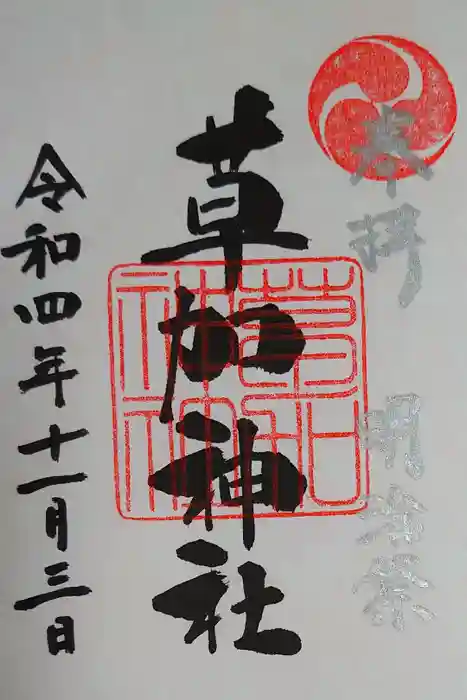 奉拝 明治祭
草加神社
令和四年十一月三日
草加神社